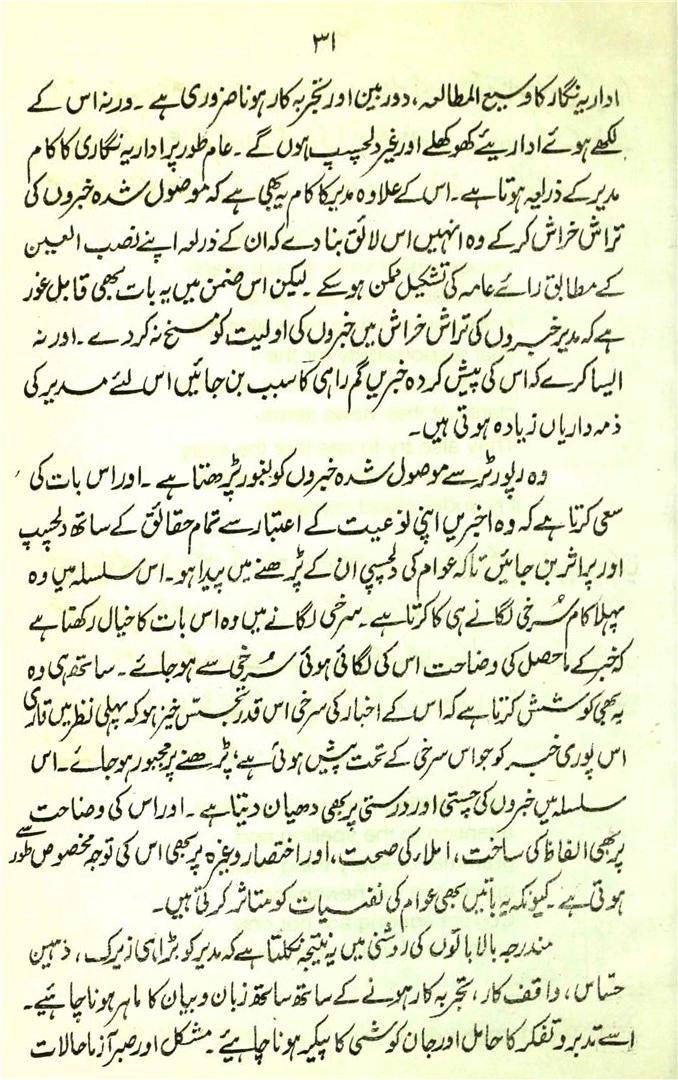 ۳۱
اداریہ نگار کا وسیع المطالعہ، دور بین اور تجربہ کار ہونا ضروری ہے ۔ ورنہ اس کے
لکھے ہوئے اداریئے کھوکھلے اور غیر دلچسپ ہوں گے ۔ عام طور پر اداریہ نگاری کا کام
مدیر کے ذریعہ ہوتا ہے ۔ اس کے علاوہ مدیر کا کام یہ بھی ہے کہ موصول شدہ خبروں کی
تراش خراش کر کے وہ انہیں اس لائق بنا دے کہ ان کے ذریعہ اپنے نصب العین
کے مطابق رائے عامہ کی تشکیل ممکن ہو سکے ۔ لیکن اس ضمن میں یہ بات بھی قابل غور
ہے کہ مدیر خبروں کی تراش خراش میں خبروں کی اولیت کو مسخ نہ کر دے ۔ اور نہ
ایسا کرے کہ اس کی پیش کردہ خبریں گم راہی کا سبب بن جائیں اس لئے مدیر کی
ذمہ داریاں زیادہ ہوتی ہیں ۔
وہ رپورٹر سے موصول شدہ خبروں کو بغور پڑھتا ہے ۔ اور اس بات کی
سعی کرتا ہے کہ وہ اخبریں اپنی نوعیت کے اعتبار سے تمام حقائق کے ساتھ دلچسپ
اور پر اثر بن جائیں تاکہ عوام کی دلچسپی ان کے پڑھنے میں پیدا ہو ۔ اس سلسلہ میں وہ
پہلا کام سُرخی لگانے ہی کا کرتا ہے ۔ سرخی لگانے میں وہ اس بات کا خیال رکھتا ہے
کہ خبر کے ماحصل کی وضاحت اس کی لگائی ہوئی سُرخی سے ہو جائے ۔ ساتھ ہی وہ
یہ بھی کوشش کرتا ہے کہ اس کے اخبار کی سرخی اس قدر تجسّس خیز ہو کہ پہلی نظر میں قاری
اس پوری خبر کو جو اس سرخی کے تحت پیش ہوئی ہے، پڑھنے پر مجبور ہو جائے ۔ اس
سلسلہ میں خبروں کی چستی اور درستی پر بھی دھیان دیتا ہے ۔ اور اس کی وضاحت
پر بھی الفاظ کی ساخت، املاء کی صحت، اور اختصار وغیرہ پر بھی اس کی توجہ مخصوص طور سے
ہوتی ہے ۔ کیونکہ یہ باتیں بھی عوام کی نفسیات کو متاثر کرتی ہیں ۔
مندرجہ بالا باتوں کی روشنی میں یہ نتیجہ نکلتا ہے کہ مدیر کو بڑا ہی زیرک، ذہین
حسّاس، واقف کار، تجربہ کار ہونے کے ساتھ ساتھ زبان و بیان کا ماہر ہونا چاہیے ۔
اسے تدبر و تفکر کا حامل اور جان کوشی کا پیکر ہونا چاہیئے ۔ مشکل اور صبر آزما حالات